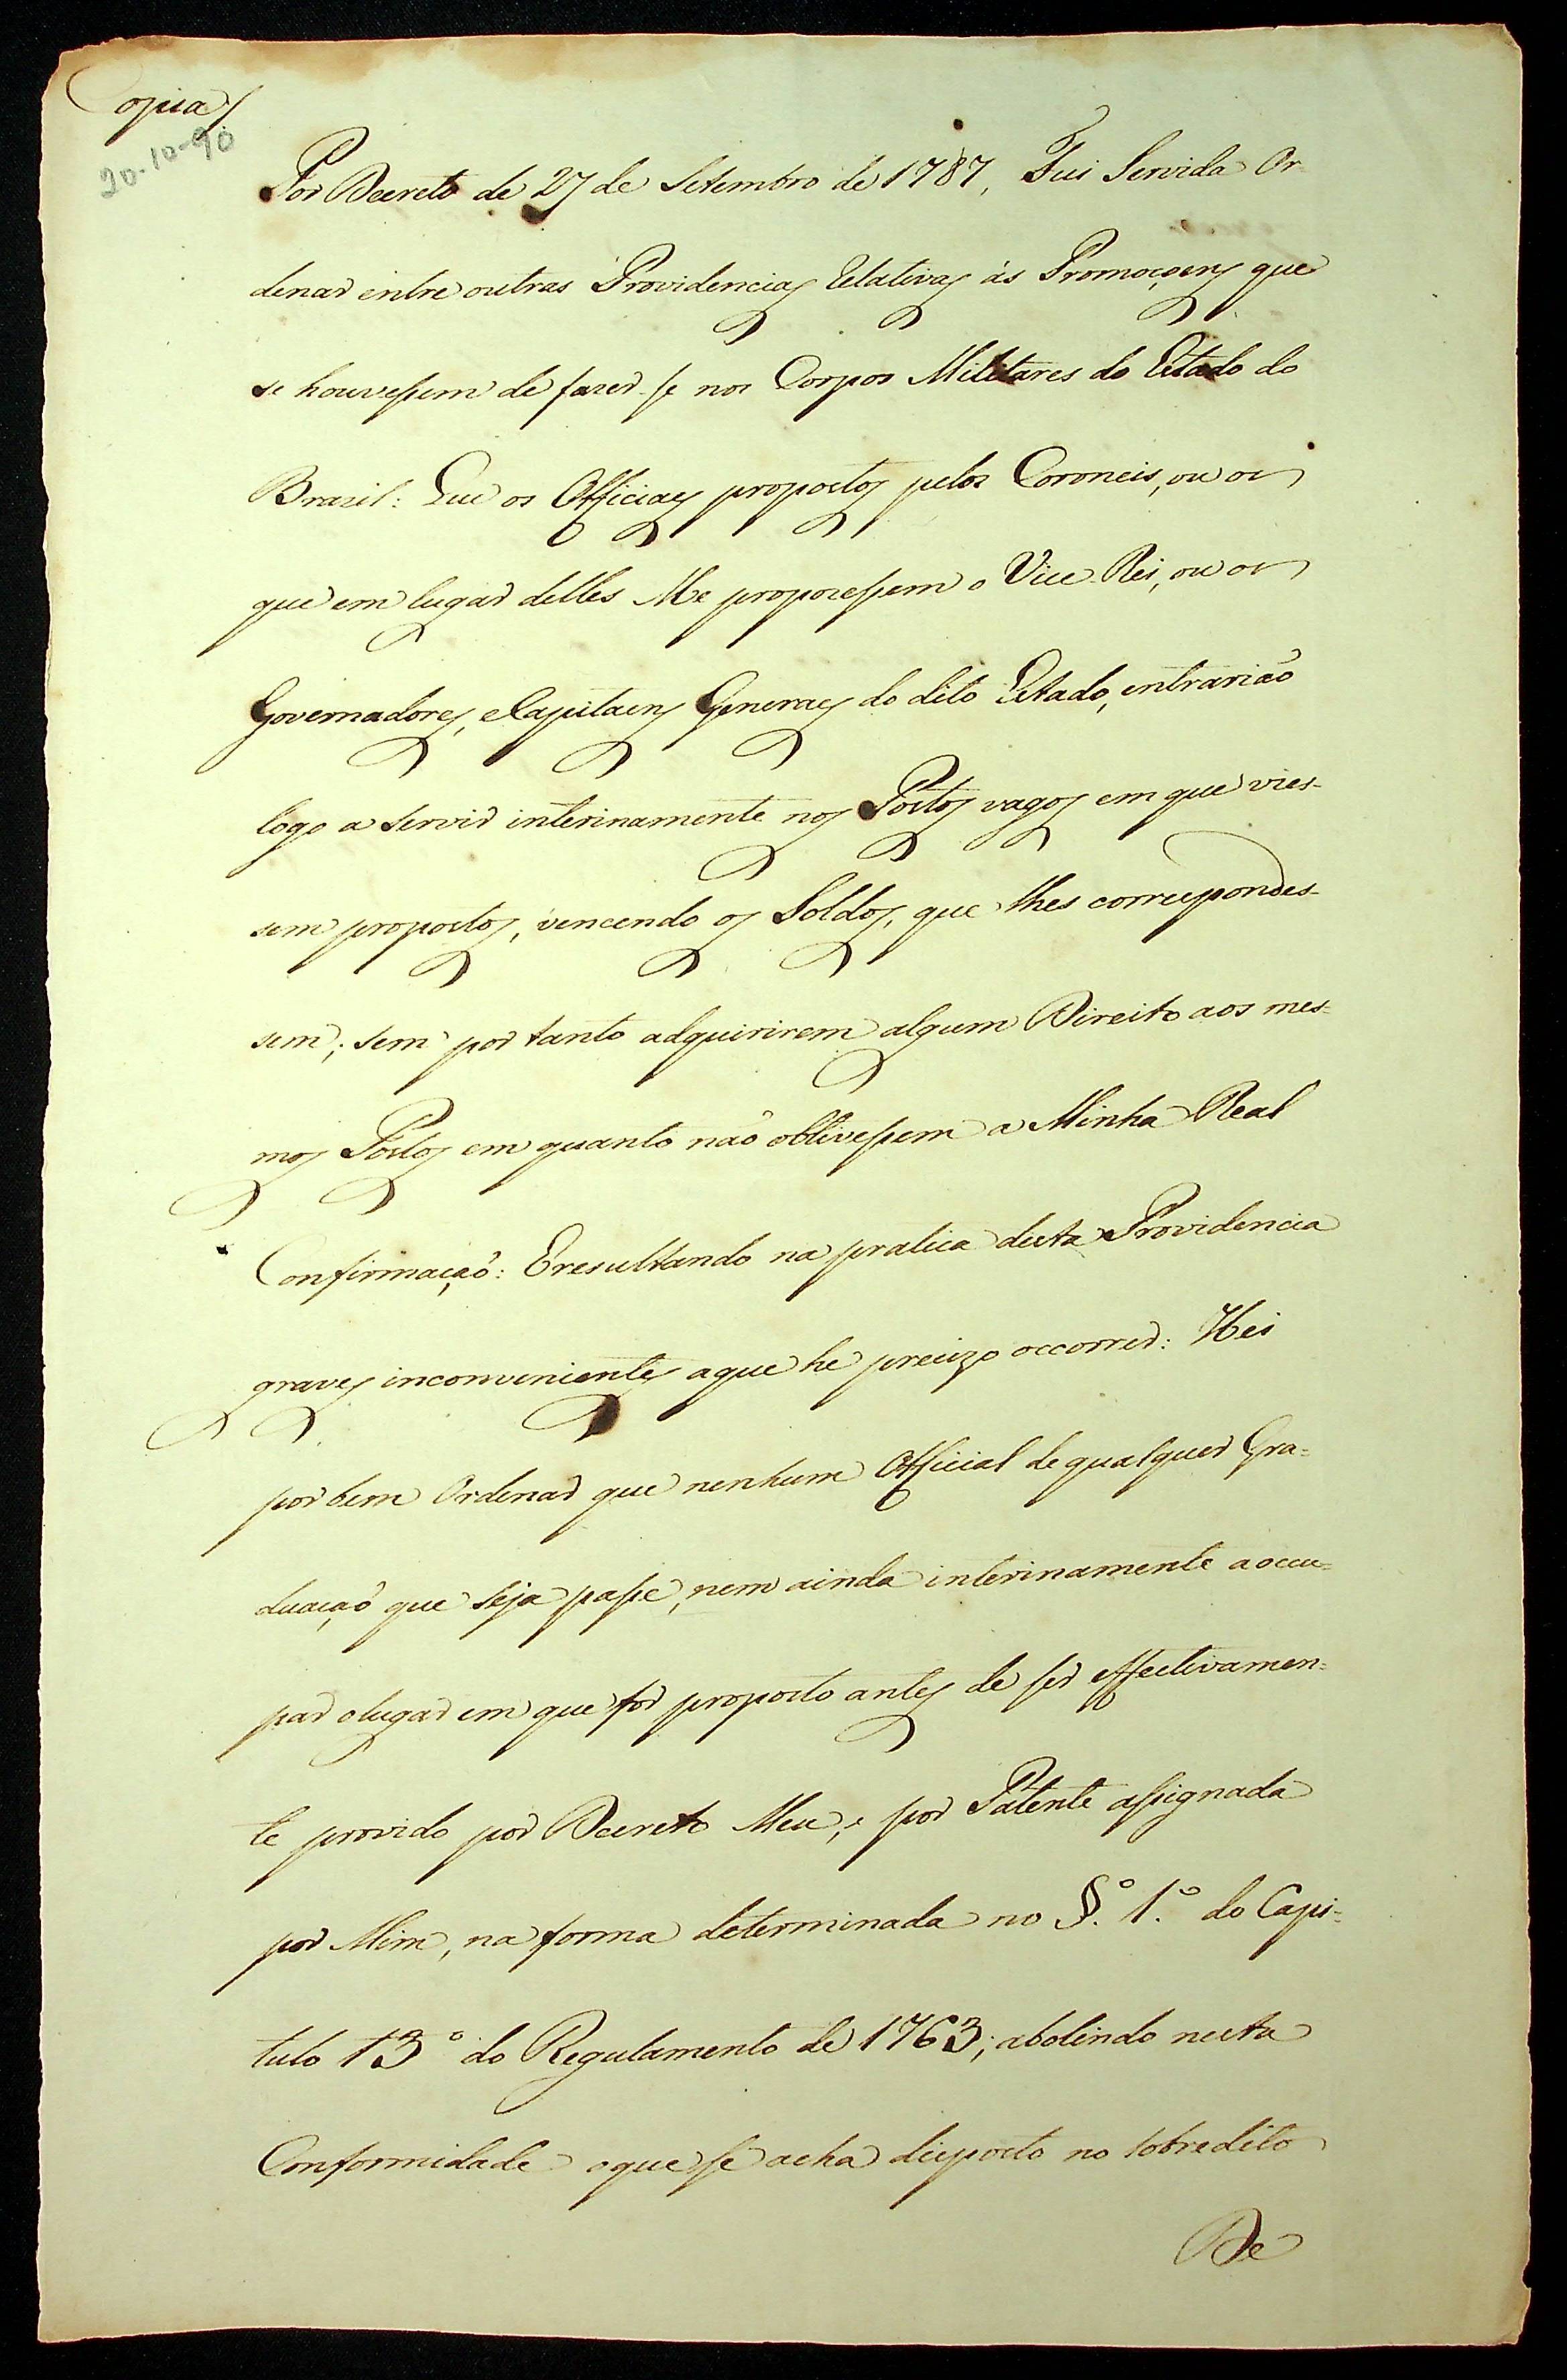 Copia
20-10-90
Por Decreto de 27 de Setembro de 1787, Fui Servida Or
denar entre outras Providencias relativas ás Promoçoens que
se houvessem de fazer-se nos Corpos Militares do Estado do
Brazil: Que os Officiaes propostos pelos Coroneis, ou os
que em lugar delles Me propozessem o Vice-Rei, ou os
Governadores, e Capitaens Generaes do dito Estado, entrarião
logo a servir interinamente nos Postos vagos em que vies-
sem propostos, vencendo os Soldos, que lhes correspondes-
sem; sem por tanto adquirirem algum Direito aos mes-
mos Postos em quanto não obtivessem a Minha Real
Confirmação: E resultando na pratica desta Providencia
graves inconvenientes a que he precizo occorrer: Hei
por bem Ordenar que nenhum Official de qualquer Gra=
duação que seja passe, nem ainda interinamente a occu=
par o lugar em que for proposto antes de ser effectivamen=
te provido por Decreto Meu, e por Patente assignada
por Mim, na forma determinada no §.º 1.º do Capi=
tulo 13º do Regulamento de 1763; abolindo nesta
Conformidade o que se acha disposto no sobredito
De